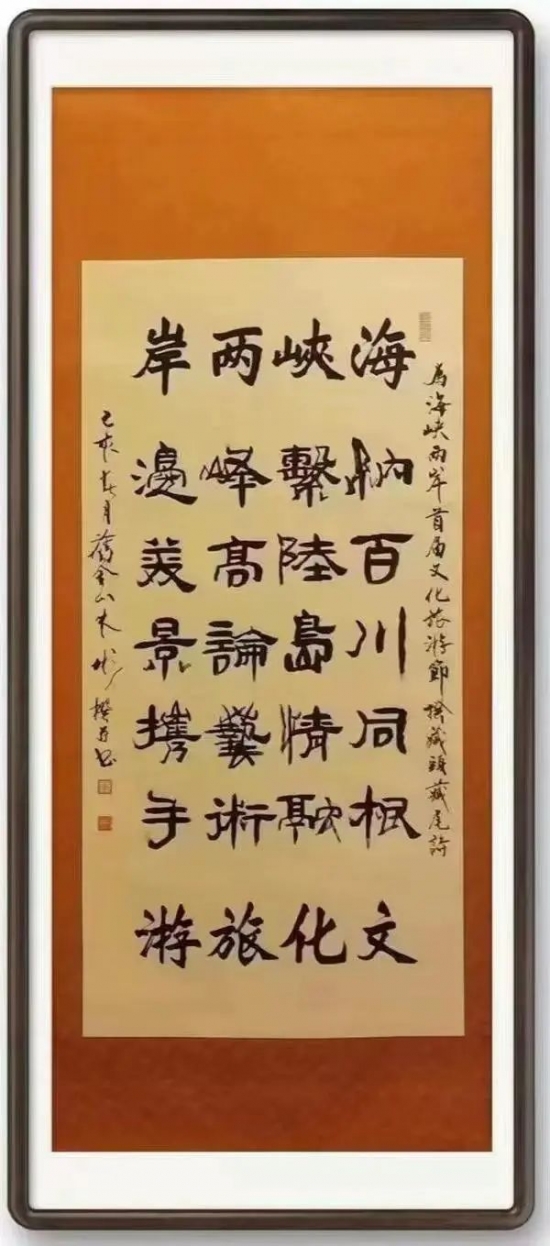 為海峡两岸首届文化旅游節撰藏頭藏尾詩
海納百川同根文
峽繫陸島情融化
两峰高論藝術旅
岸邊美景攜手游
己亥春月舊金山木彬撰并书